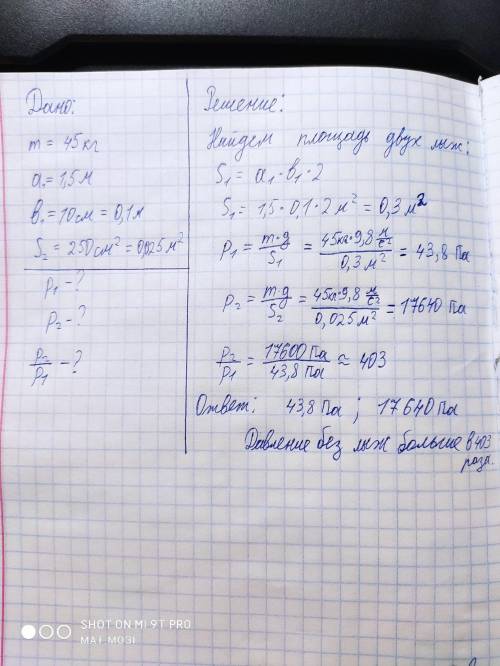 Дано:
m = 45 кг
a₁ = 1,5 м
b₁ = 10 см = 0,1 м
S₂ = 250 см² = 0,025 м²
p₁ - ?
p₂ - ?
p₂/p₁ - ?
Решение:
Найдем площадь двух лыж:
S₁ = a₁ · b₁ · 2
S₁ = 1,5 · 0,1 · 2 м² = 0,3 м²
p₁ = m·g/S₁ = 45кг·9,8 м/с²/0,3 м² = 43,8 Па
p₂ = m·g/S₂ = 45кг·9,8 м/с²/0,025 м² = 17640 Па
p₂/p₁ = 17600 Па/43,8 Па ≈ 403
Ответ: 43,8 Па ; 17640 Па
Давление без лыж больше в 403
раза.
SHOT ON MI 9T PRO